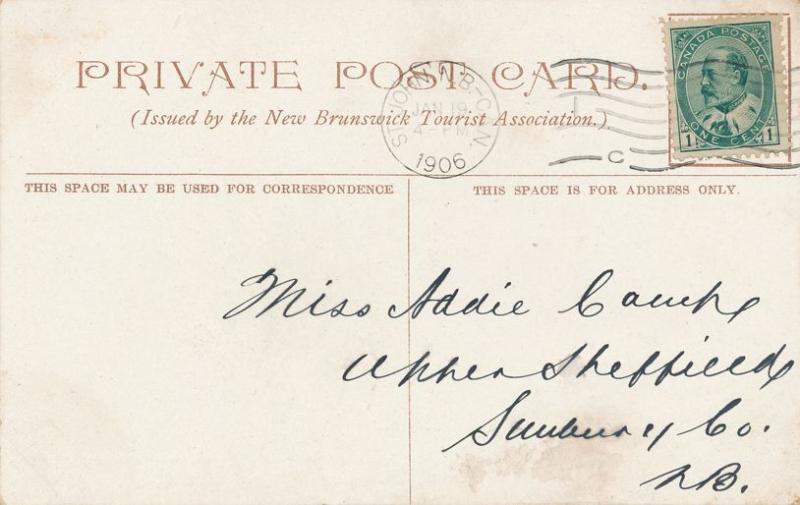 PRIVATE POST CARD.
(Issued by the New Brunswick Tourist Association.)
ST. JOHN, N.B-CAN.
JAN 19
4-PM
1906
C
CANADA POSTAGE
1 ONE CENT 1
THIS SPACE MAY BE USED FOR CORRESPONDENCE
THIS SPACE IS FOR ADDRESS ONLY.
Miss Addie
Upper Sheffield
Sunbury Co.
N.B.